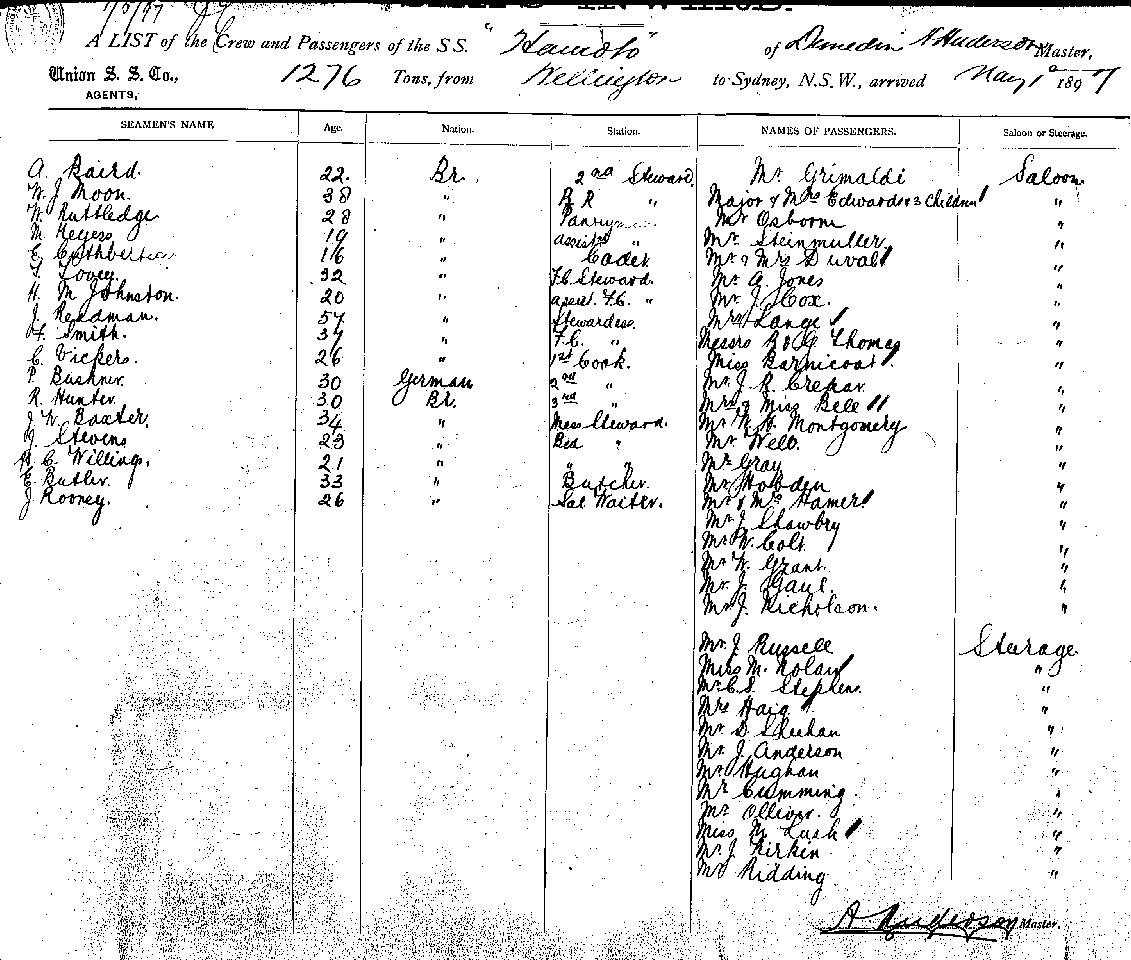 A LIST of the Crew and Passengers of the S.S. "Hauroto" of Dunedin A Anderson Master,
Union S. S. Co., 1276 Tons, from Wellington to Sydney, N.S.W., arrived May 1st 1897
AGENTS,
SEAMEN'S NAME Age. Nation. Station. NAMES OF PASSENGERS. Saloon or Steerage.
A. Baird. 22. Br. 2nd Steward. Mr Grimaldi Saloon
W. J Moon. 38 " B R " Major & Mrs Edwards & 3 Children "
W. Ruttledge 28 " Pantryman Mr Osborn "
M. Keyess 19 " assist " Mr. Steinmuller "
E. Cuthbertson 16 " Cadet. Mr & Mrs Duval "
Lovey. 32 " F.C. Steward. Mr. A. Jones "
H. M Johnston. 20 " assist. F.C. " Mr. J. Cox. "
J. Readman. 57 " Stewardess. Mrs Lange "
Smith. 37 " F.C. " Messrs R & G Thomas "
C. Vickers. 26 " 1st Cook. Miss Barnicoat "
P. Bushner. 30 German 2nd " Mr. J. R. Crepar "
R. Hunter. 30 Br. 3rd " Mrs & Miss Bell "
J. W. Baxter. 34 " Mess Steward. Mr. W. H. Montgomery "
Stevens 23 " Bed " Mr Webb. "
C. Willings. 21 " " " Mr Gray "
E. Butler. 33 " Butcher. Mr Hobden "
J Rooney. 26 " Sal Waiter. Mr & Mrs Hamer "
Mr. J. Shawbry "
Mr. W. Colt "
Mr W. Grant "
Mr. J. Gaul. "
Mr J. Nicholson. "
Mr. J Russell Steerage
Miss M. Nolan "
Mr. C. S. Stephens. "
Mrs Haig "
Mr. D Sheehan "
Mr. J. Anderson "
Mr Hughan "
Mr Cumming. "
Mr. Olliver. "
Miss M. Lush "
Mr. J. Kirkin "
Mr Ridding "
A Anderson Master.